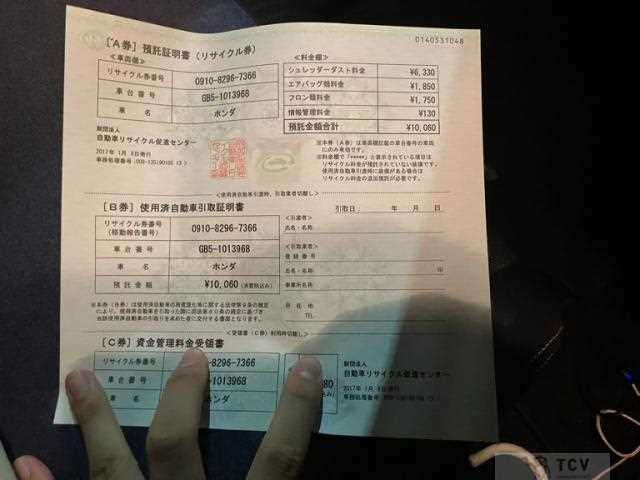 0140531048
［A券］預託証明書（リサイクル券）
＜車両欄＞
リサイクル券番号 0910-8296-7366
車台番号 GB5-1013968
車名 ホンダ
＜料金欄＞
シュレッダーダスト料金 ¥6,330
エアバッグ類料金 ¥1,850
フロン類料金 ¥1,750
情報管理料金 ¥130
預託金額合計 ¥10,060
財団法人
自動車リサイクル促進センター
2017年 1月 8日発行
＜使用済自動車引渡時、引取業者切離し＞
［B券］使用済自動車引取証明書
引取日： 年 月 日
リサイクル券番号
(移動報告番号) 0910-8296-7366
車台番号 GB5-1013968
車名 ホンダ
預託金額 ¥10,060 (消費税込み)
＜引渡者＞
氏名・名称
＜引取業者＞
登録番号
氏名・名称 印
事業所名
所在地
TEL
＜受領書（C券）利用時切離し＞
［C券］資金管理料金受領書
リサイクル券番号 -8296-7366
車台番号 -1013968
車名 ホンダ
80
財団法人
自動車リサイクル促進センター
2017年 1月 8日発行
TCV